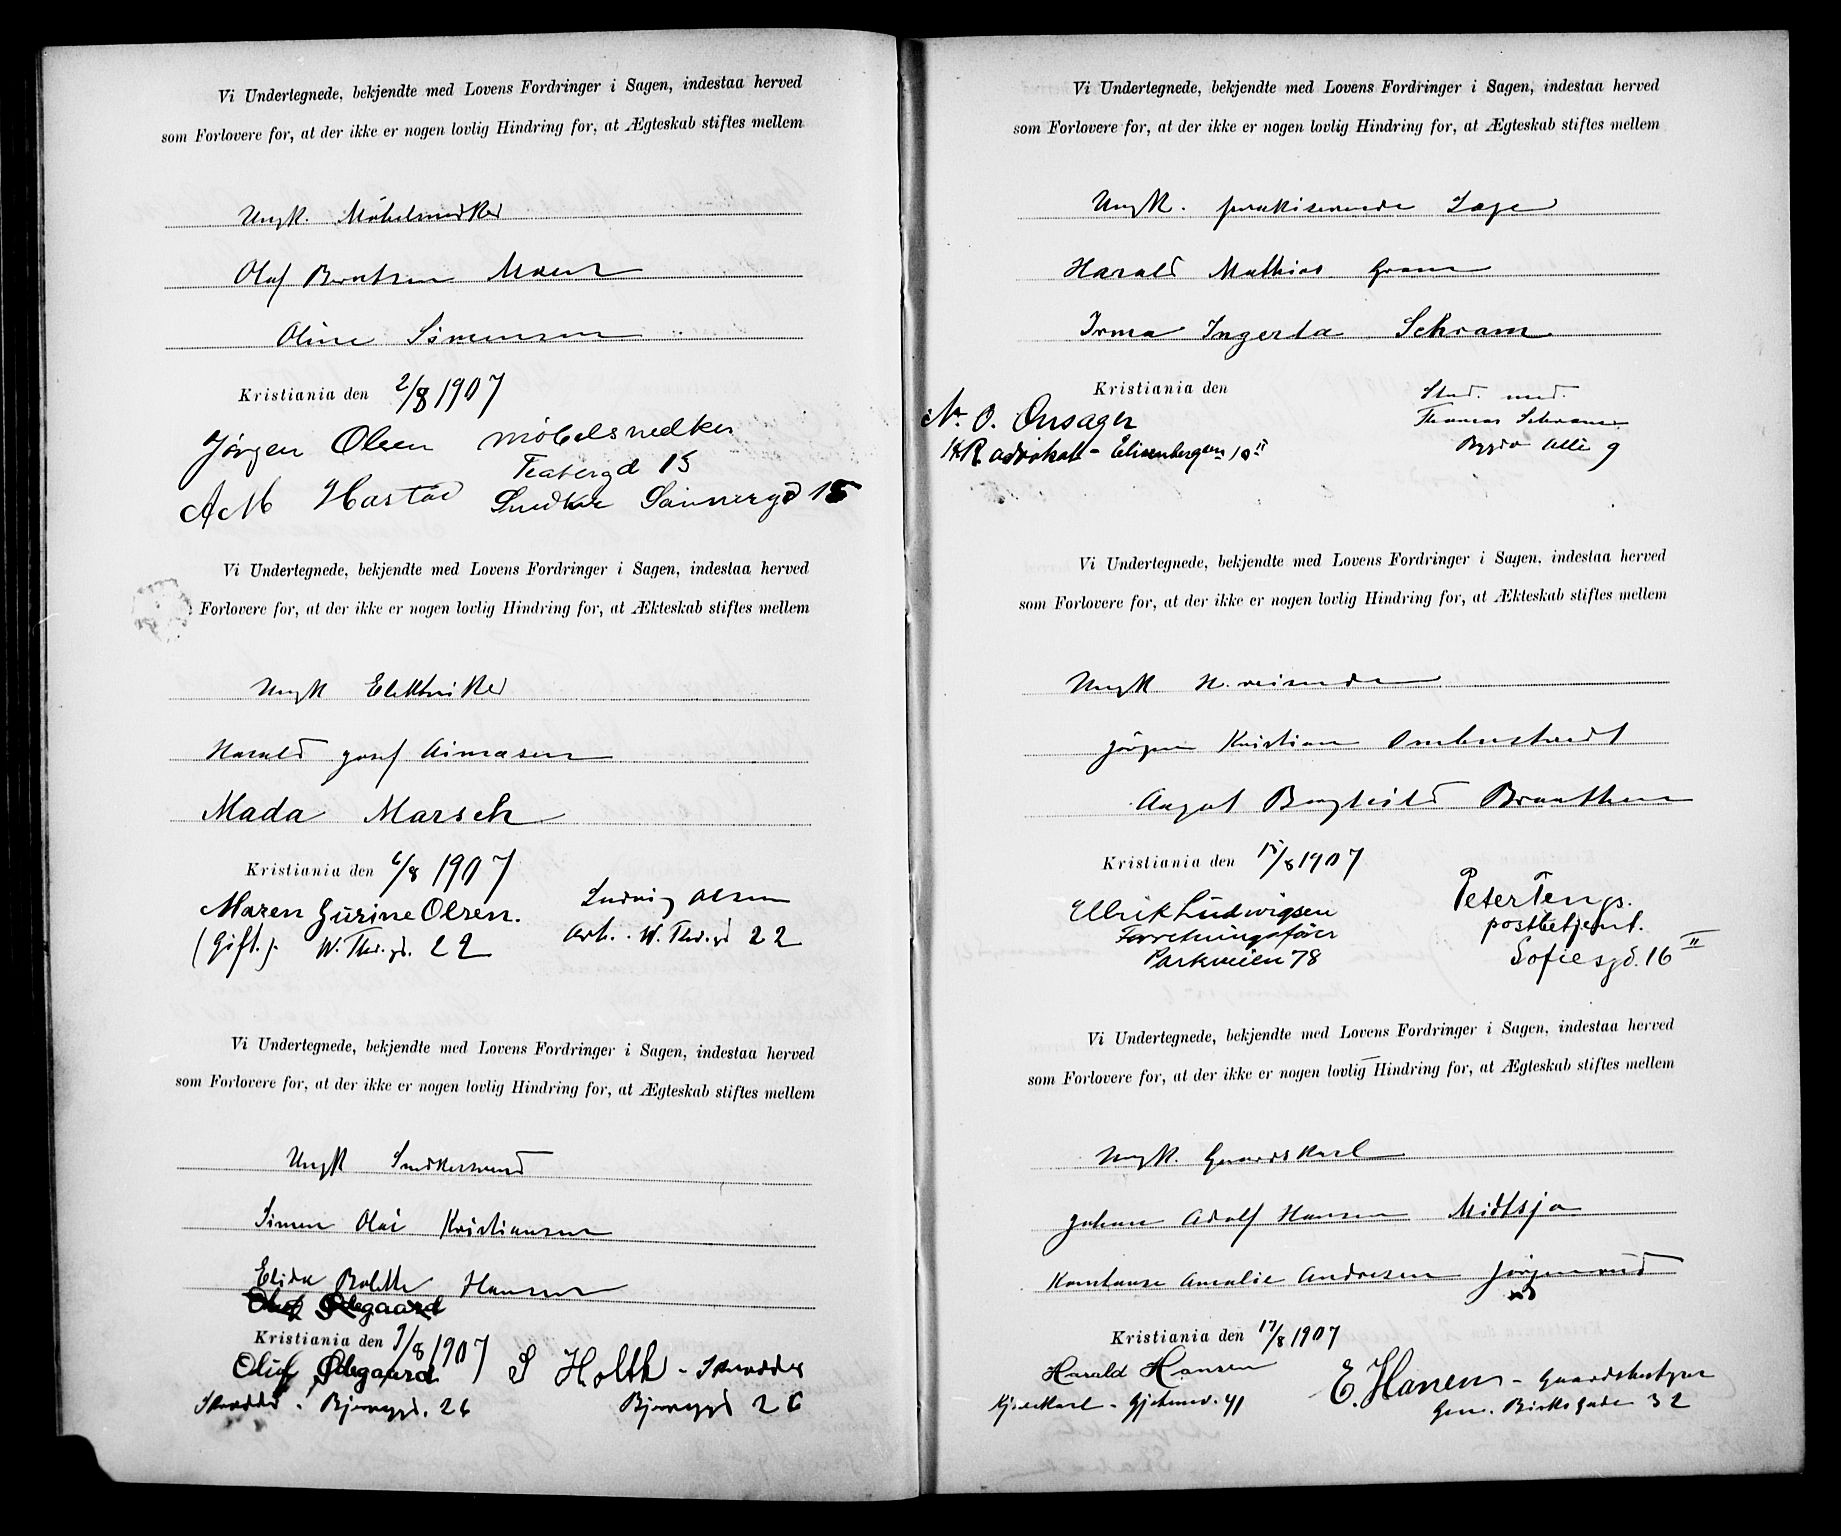 Vi Undertegnede, bekjendte med Lovens Fordringer i Sagen, indestaa herved
som Forlovere for, at der ikke er nogen lovlig Hindring for, at Ægteskab stiftes mellem
Ungk. Möbelsnedker
Olaf Berntsen Moen
Oline Simensen
Kristiania den 2/8 1907
Jørgen Olsen möbelsnedker
Teatergd 15
A M Hastad Snedker Sannergd 15
Vi Undertegnede, bekjendte med Lovens Fordringer i Sagen, indestaa herved
Forlovere for, at der ikke er nogen lovlig Hindring for, at Ækteskab stiftes mellem
Ungk Elektriker
Harald Josef Aimasen
Mada Marsch
Kristiania den 6/8 1907
Maren Gurine Olsen. Ludvig Olsen
(Gift.). W. Thr. gd. 22 Arb. W. Thr. gd 22
Vi Undertegnede, bekjendte med Lovens Fordringer i Sagen, indestaa herved
som Forlovere for, at der ikke er nogen lovlig Hindring for, at Ægteskab stiftes mellem
Ungk Snedkersvend
Simen Olai Kristiansen
Elida Bolette Hansen
Oluf Ødegaard
Kristiania den 9/8 1907
Oluf Ødegaard S Holth - Skrædder
Skrædder Bjerregd. 26 Bjerregd 26
Vi Undertegnede, bekjendte med Lovens Fordringer i Sagen, indestaa herved
som Forlovere for, at der ikke er nogen lovlig Hindring for, at Ægteskab stiftes mellem
Ungk. praktiserende Læge
Harald Mathias Gram
Irma Ingerta Schram
Kristiania den
N. O. Onsager Stud. med.
KR advokat - Elisenbergvn 10 II Thomas Schram
Bygdø Allé 9
Vi Undertegnede, bekjendte med Lovens Fordringer i Sagen, indestaa herved
som Forlovere for, at der ikke er nogen lovlig Hindring for, at Ækteskab stiftes mellem
Ungk H. reisende
Jörgen Kristian Ombustvedt
Aagot Bergliot Braathen
Kristiania den 15/8 1907
Ellrik Ludwigsen Peter Tengs.
Forretningsfører postbetjent.
Parkveien 78 Sofiesgd. 16 II
Vi Undertegnede, bekjendte med Lovens Fordringer i Sagen, indestaa herved
som Forlovere for, at der ikke er nogen lovlig Hindring for, at Ægteskab stiftes mellem
Ungk. Gaardskarl
Johan Adolf Hansen Midtsjø
Konstanse Amalie Andresen Jörgensrud
Kristiania den 17/8 1907
Harald Hansen E. Hansen - Gaardsbestyrer
Kjørekarl - Gjetemv. 41 Gen. Birchs Gade 32